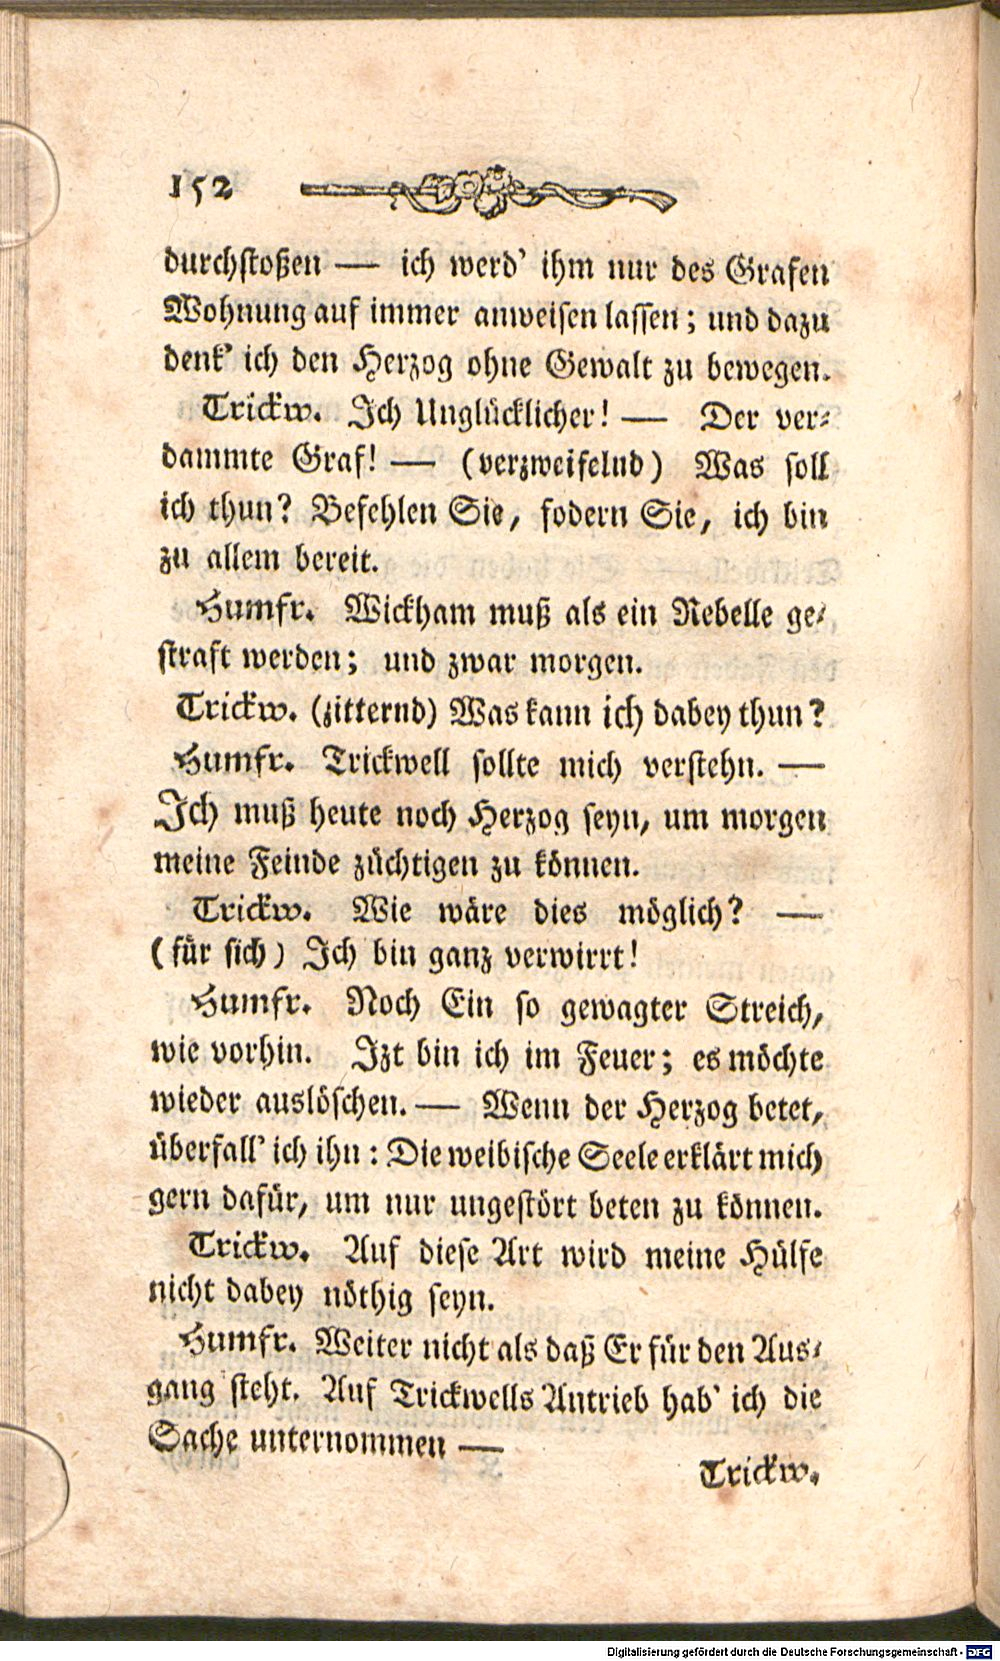 152
durchstoßen — ich werd' ihm nur des Grafen
Wohnung auf immer anweisen lassen; und dazu
denk' ich den Herzog ohne Gewalt zu bewegen.
Trickw. Ich Unglücklicher! — Der ver-
dammte Graf! — (verzweifelnd) Was soll
ich thun? Befehlen Sie, fodern Sie, ich bin
zu allem bereit.
Humfr. Wickham muß als ein Rebelle ge-
straft werden; und zwar morgen.
Trickw. (zitternd) Was kann ich dabey thun?
Humfr. Trickwell sollte mich verstehn. —
Ich muß heute noch Herzog seyn, um morgen
meine Feinde züchtigen zu können.
Trickw. Wie wäre dies möglich? —
(für sich) Ich bin ganz verwirrt!
Humfr. Noch Ein so gewagter Streich,
wie vorhin. Izt bin ich im Feuer; es möchte
wieder auslöschen. — Wenn der Herzog betet,
überfall' ich ihn: Die weibische Seele erklärt mich
gern dafür, um nur ungestört beten zu können.
Trickw. Auf diese Art wird meine Hülfe
nicht dabey nöthig seyn.
Humfr. Weiter nicht als daß Er für den Aus-
gang steht. Auf Trickwells Antrieb hab' ich die
Sache unternommen —
Trickw.
Digitalisierung gefördert durch die Deutsche Forschungsgemeinschaft - DFG